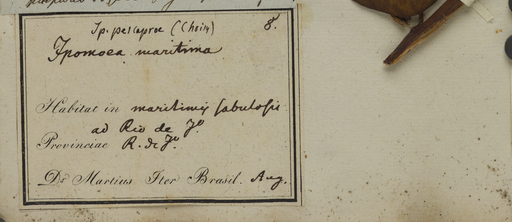 Ip. pescaprae (Choisy) 8.
Ipomoea maritima
Habitat in maritimis sabulosis
ad Rio de Jº
Provinciae R. de Jº.
Dr Martius Iter Brasil. Aug.